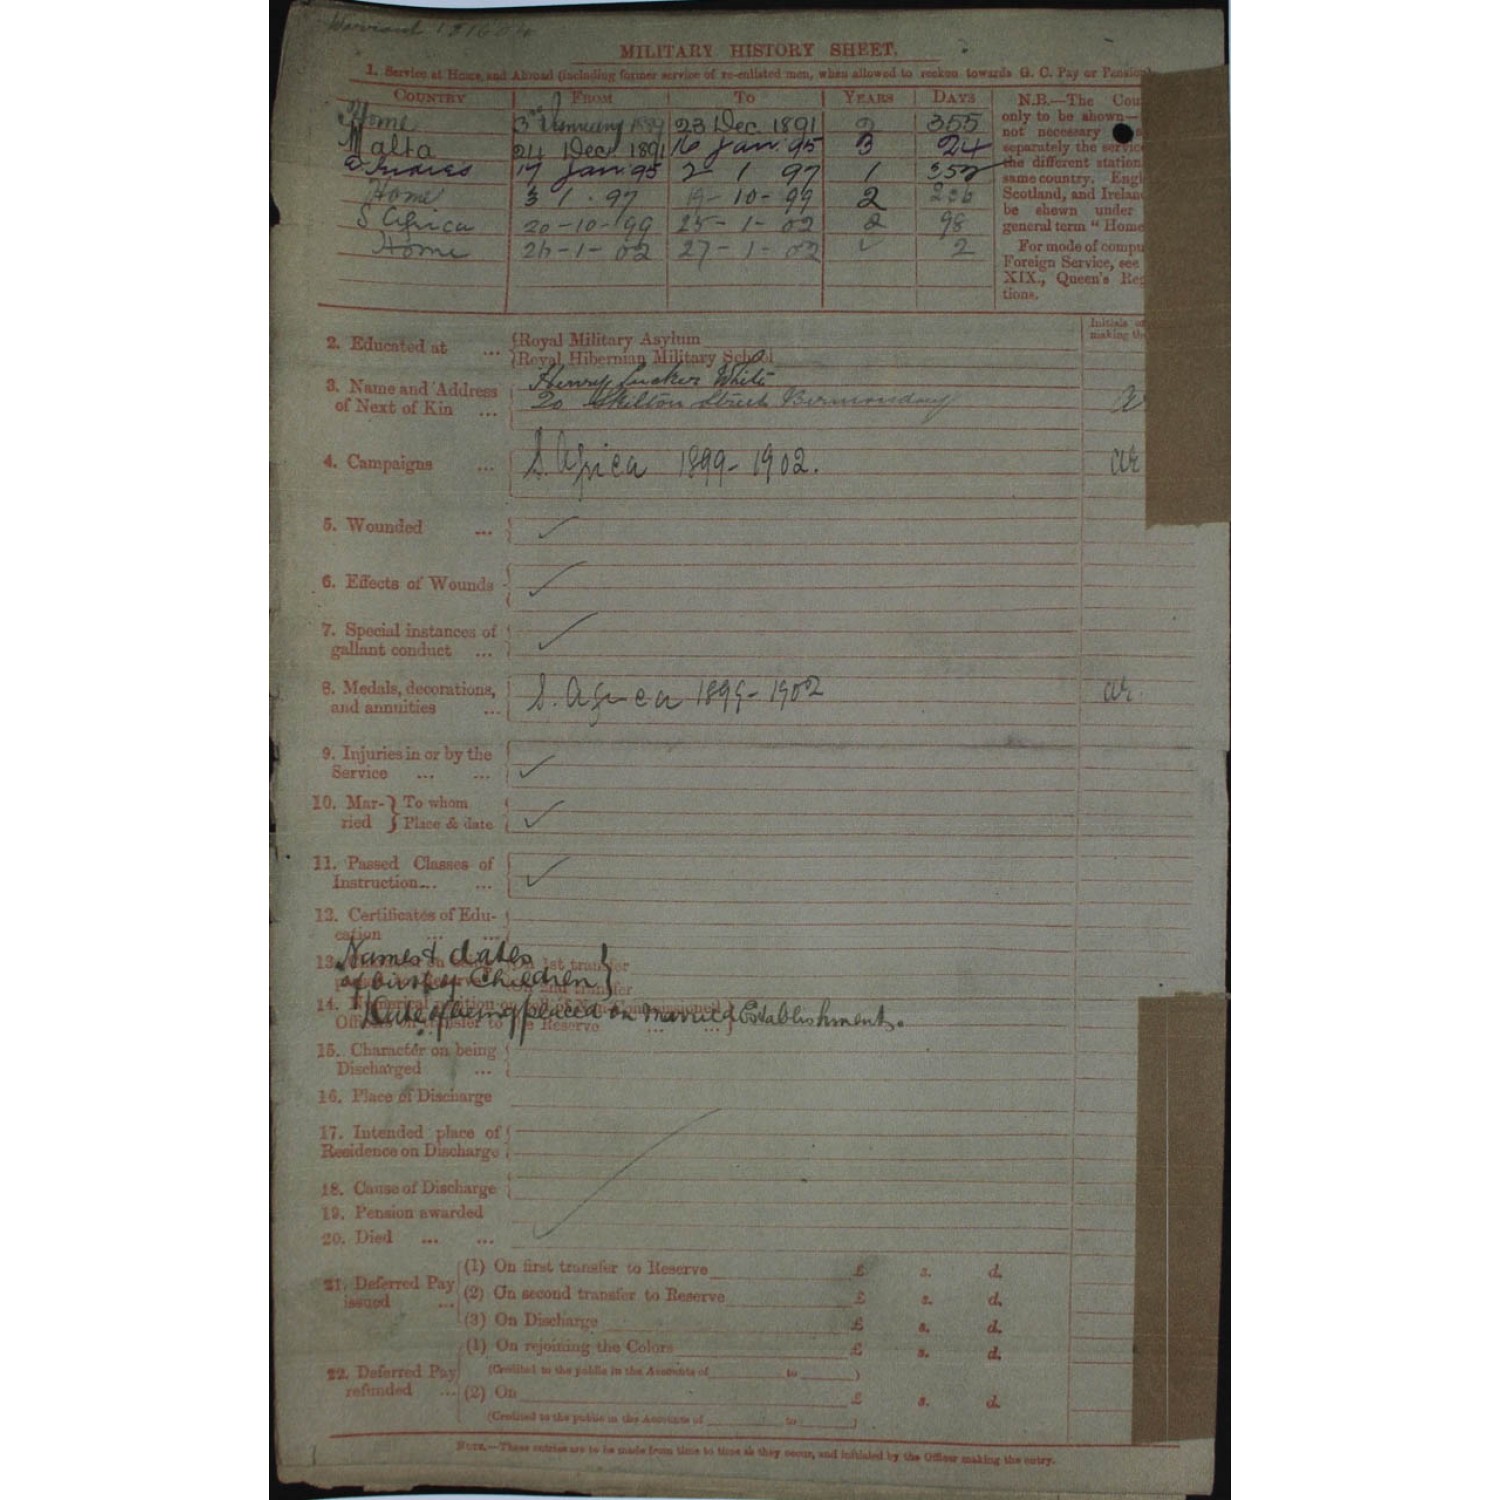 MILITARY HISTORY SHEET.
1. Service at Home, and Abroad (including former service of re-enlisted men, when allowed to reckon towards G. C. Pay or Pension)
COUNTRY FROM TO YEARS DAYS
Home 3rd January 1889 23 Dec 1891 2 355
Malta 24 Dec 1891 16 Jan 95 3 24
E. Indies 17 Jan 95 2 1 97 1 352
Home 3 1 . 97 19-10-99 2
S Africa 20-10-99 25-1-02 2 98
Home 26-1-02 27-1-02 ✓ 2
N.B.—The Cou
only to be shown—
not necessary
separately the service
the different station
same country. Engl
Scotland, and Irelan
be shewn under
general term "Home
For mode of compu
Foreign Service, see
XIX., Queen's Reg
tions.
Initials of
making the
2. Educated at ... Royal Military Asylum
Royal Hibernian Military School
3. Name and Address of Next of Kin ... Henry Tucker White
20 Skilton Street Bermondsey
4. Campaigns ... S. Africa 1899-1902. ar
5. Wounded ... ✓
6. Effects of Wounds ✓
7. Special instances of gallant conduct ... ✓
8. Medals, decorations, and annuities ... S. Africa 1899-1902 ar.
9. Injuries in or by the Service ... ... ✓
10. Married } To whom
Place & date ✓
11. Passed Classes of Instruction... ... ✓
12. Certificates of Education ... ...
Names & dates
of birth of Children }
13.
1st transfer
2nd transfer
14. Numerical position on roll of Non-Commissioned
Officers on transfer to the Reserve ... ...
Date of being placed on Married Establishment.
15. Character on being Discharged ...
16. Place of Discharge
17. Intended place of Residence on Discharge
18. Cause of Discharge
19. Pension awarded
20. Died ... ...
21. Deferred Pay issued ...
(1) On first transfer to Reserve £ s. d.
(2) On second transfer to Reserve £ s. d.
(3) On Discharge £ s. d.
22. Deferred Pay refunded ...
(1) On rejoining the Colors £ s. d.
(Credited to the public in the Accounts of to )
(2) On £ s. d.
(Credited to the public in the Accounts of to )
NOTE.—These entries are to be made from time to time as they occur, and initialed by the Officer making the entry.